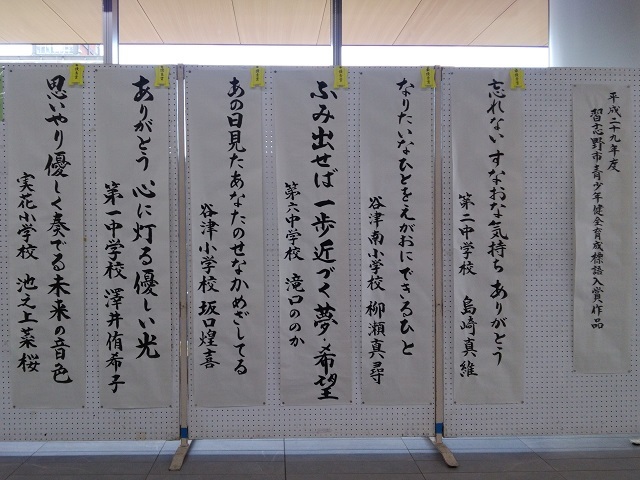 平成二十九年度
習志野市青少年健全育成標語入賞作品
忘れない すなおな気持ち ありがとう
第二中学校 島崎真維
なりたいなひとをえがおにできるひと
谷津南小学校 柳瀬真尋
ふみ出せば 一歩近づく夢・希望
第六中学校 滝口ののか
あの日見たあなたのせなかめざしてる
谷津小学校 坂口煌喜
ありがとう 心に灯る優しい光
第一中学校 澤井侑希子
思いやり優しく奏でる未来の音色
実花小学校 池之上菜桜